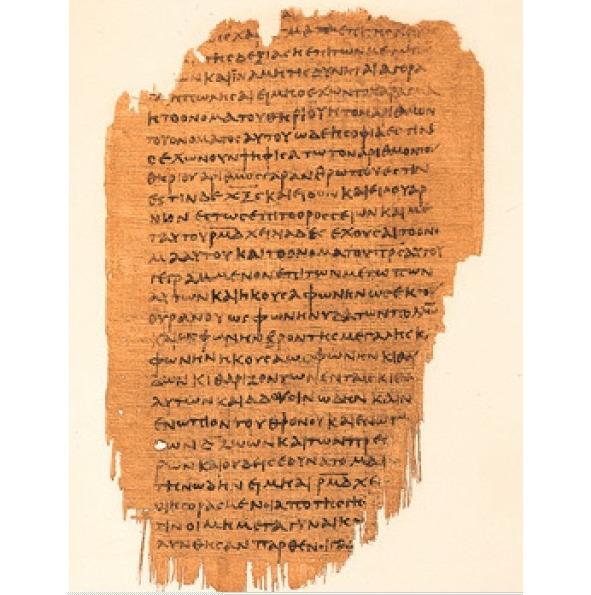 ματα επι τηϲ
τηϲ δεξιαϲ η επι των
και ϊνα μη τιϲ δυνηται αγορα
η πωληϲαι ει μη ο εχων το χαραγμα
η το ονομα του θηριου η τον αριθμον
του ονοματοϲ αυτου ωδε η ϲοφια εϲτιν
ο εχων ουν ψηφιϲατω τον αριθμον του
θηριου αριθμοϲ γαρ ανθρωπου εϲτιν
εϲτιν δε χξϛ και ειδον και ειδου αρ
νιον εϲτωϲ επι το οροϲ ϲειων και με
τ αυτου ρμδ χειλιαδεϲ εχουϲαι το ονο
μα αυτου και το ονομα του πρϲ αυτου
γεγραμμενον επι των μετωπων
αυτων και ηκουϲα φωνην ωϲ εκ του
ουρανου ωϲ φωνην υδατων πολλω
και ωϲ φωνην βροντηϲ μεγαληϲ κ
φωνην ηκουϲα ωϲ φωνην κιθαρ
δων κιθαριζοντων εν ταιϲ κιθ
αυτων και αδουϲιν ωδην καιν
ενωπιον του θρονου και ενωπ
των δ ζωων και των πρεϲ
ρων και ουδειϲ εδυνατο μαθ
την ωδην ει μη αι ρμδ χει
οι ηγοραϲμενοι απο τηϲ γηϲ
ϲιν οι μη μετα γυναικ
λυνθηϲαν παρθενοι